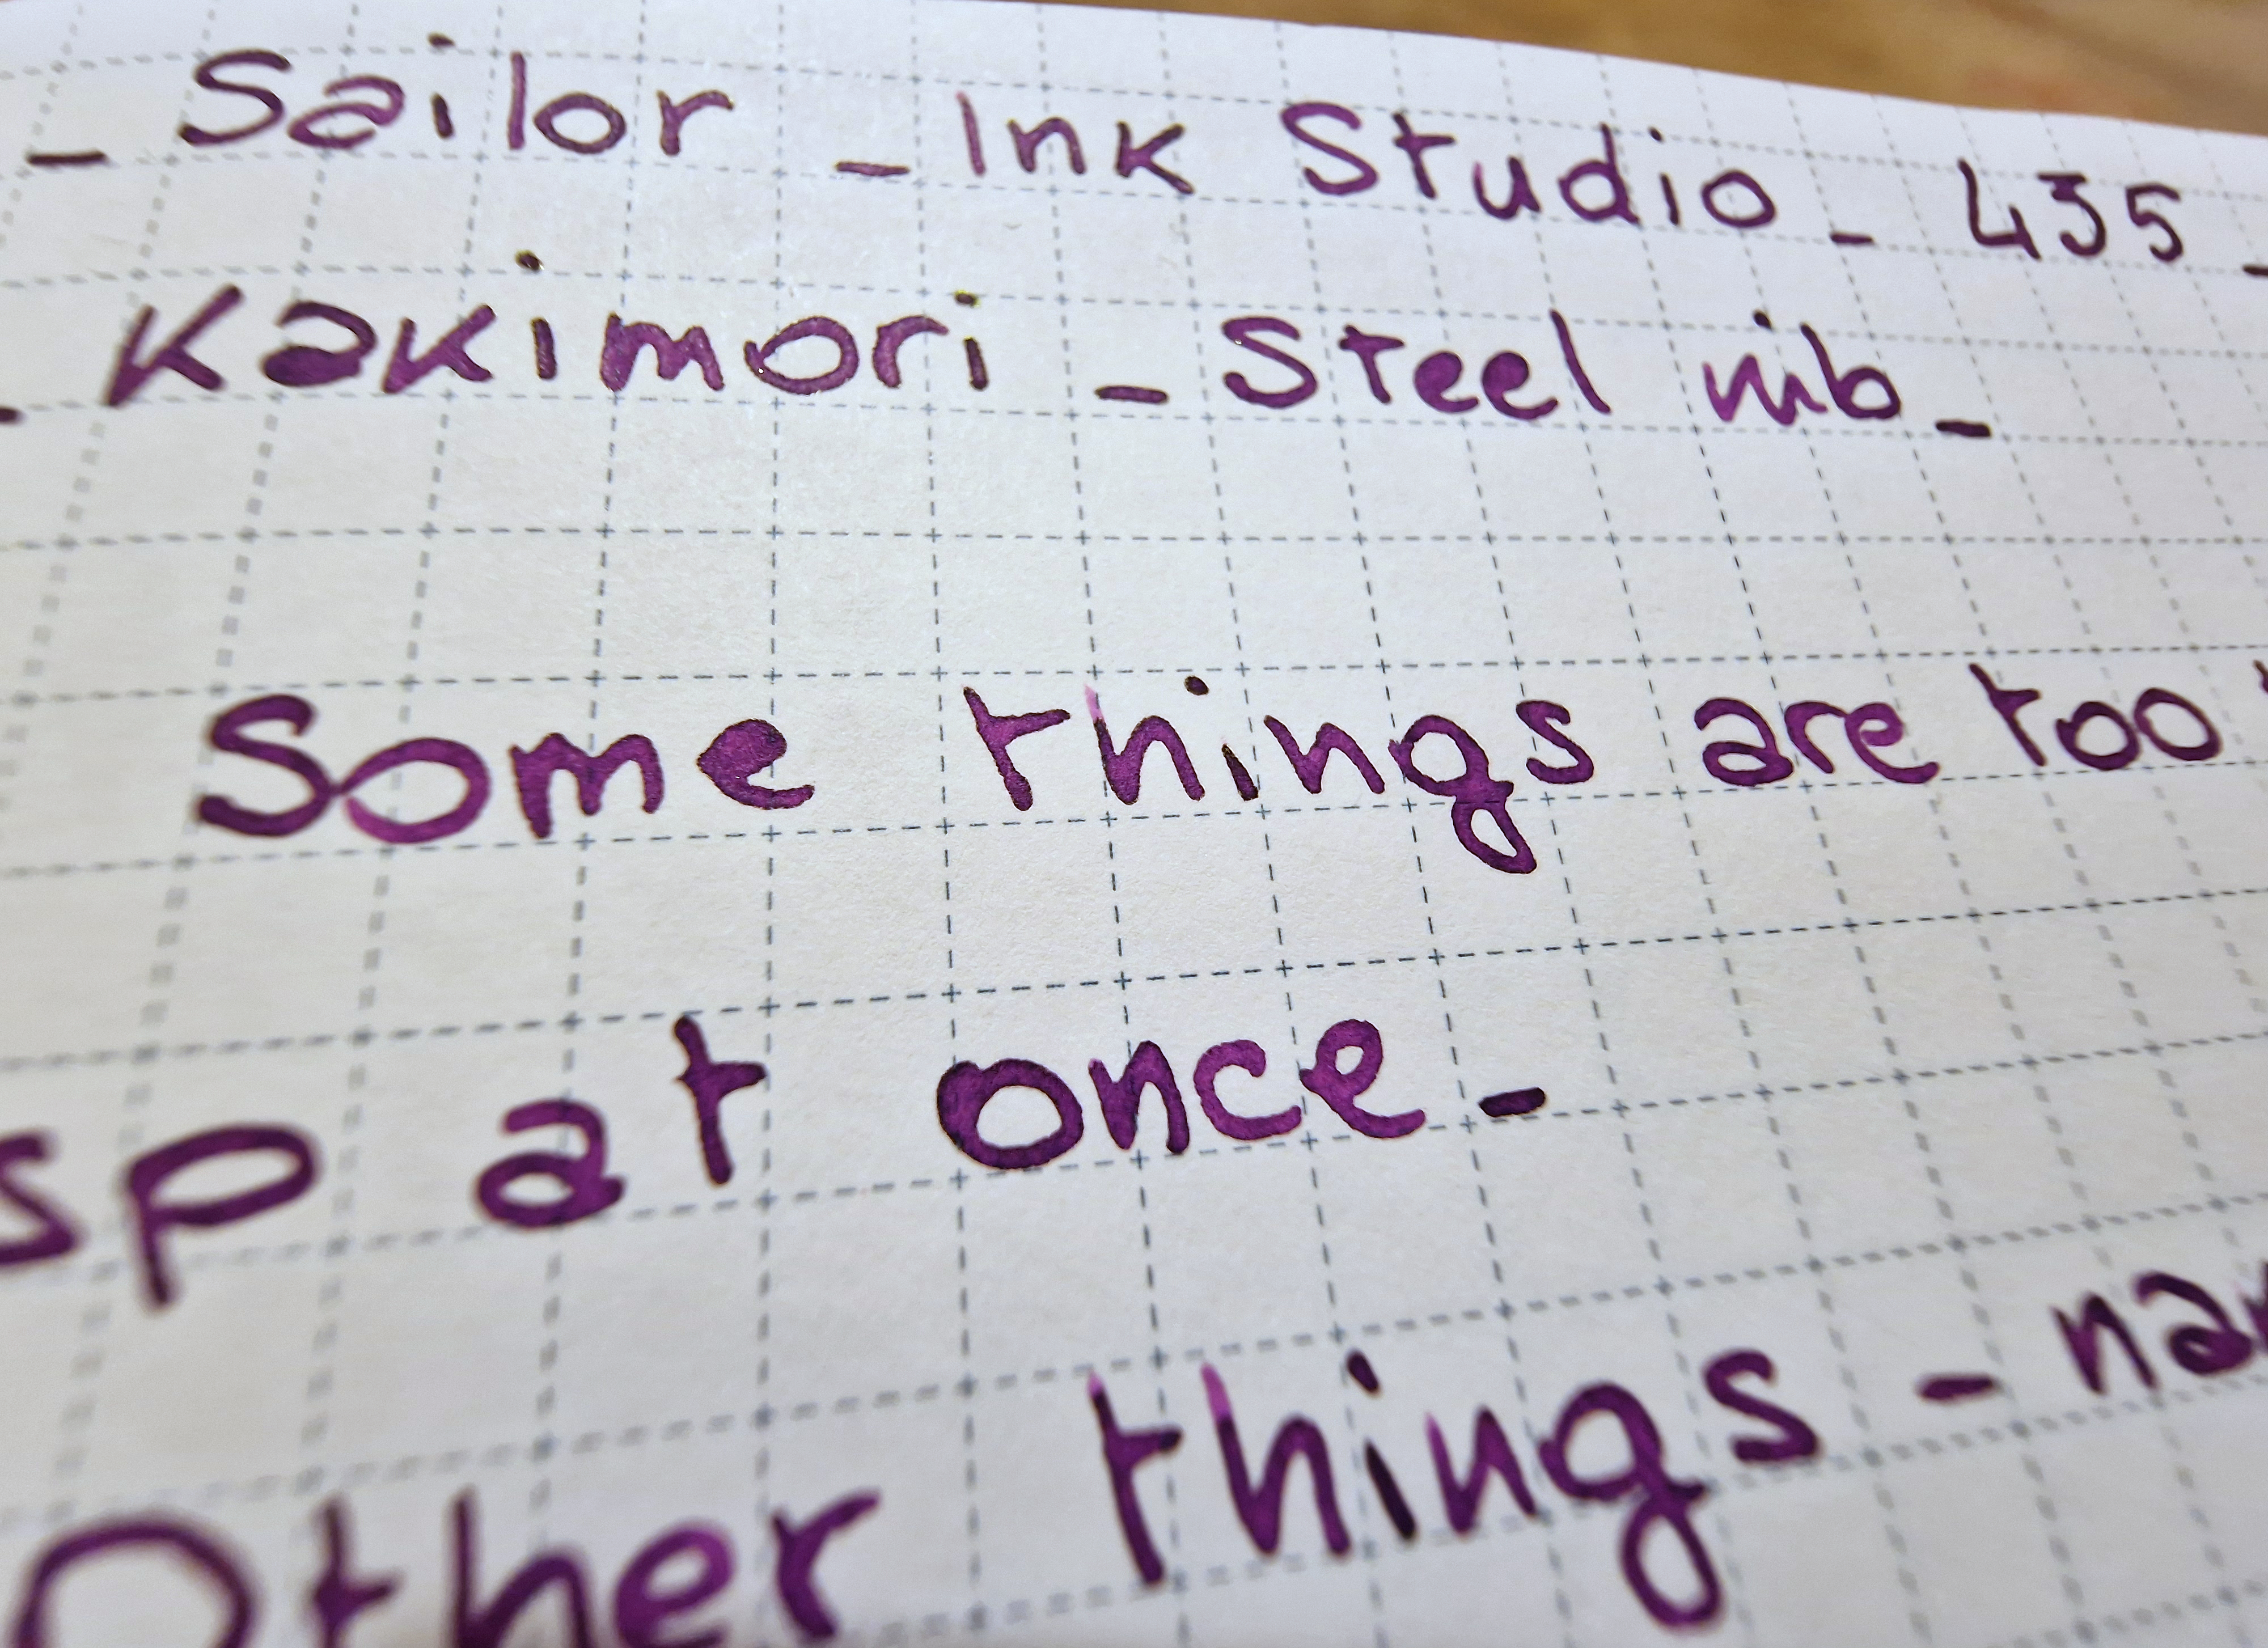 _ Sailor _ Ink Studio _ 435 _
_ Kakimori _ Steel nib _
Some things are too
at once _
Other things -